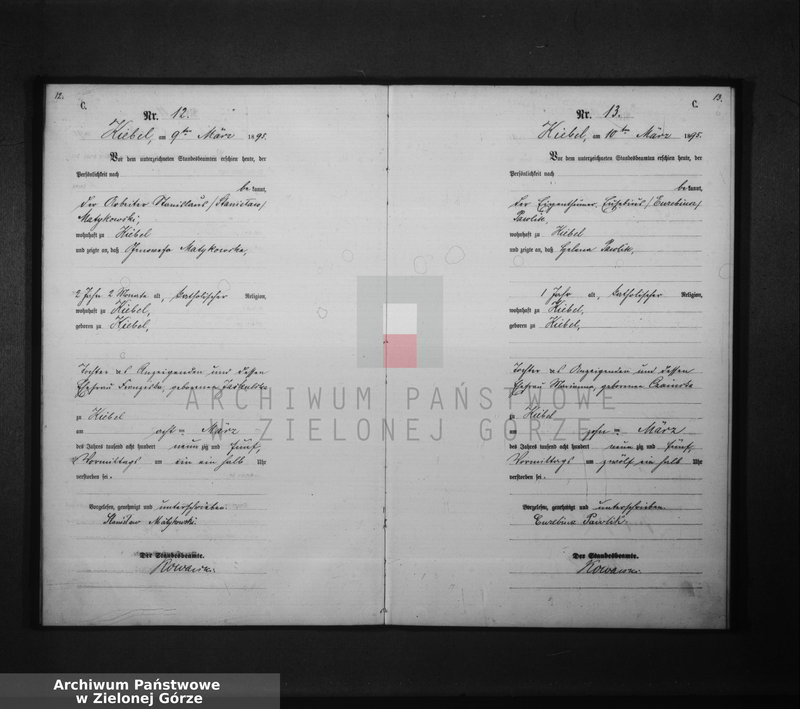 12.
C.
Nr. 12.
Kiebel, am 9ten März 1895.
Vor dem unterzeichneten Standesbeamten erschien heute, der
Persönlichkeit nach
be kannt,
der Arbeiter Stanislaus /Stanislaw/
Matykowski,
wohnhaft zu Kiebel
und zeigte an, daß Genowefa Matykowska,
2 Jahr 2 Monate alt, katholischer Religion,
wohnhaft zu Kiebel,
geboren zu Kiebel,
Tochter des Anzeigenden und dessen
Ehefrau Franziska, geborenen
zu Kiebel
am acht = März
des Jahres tausend acht hundert neun zig und fünf,
Vormittags um ein ein halb Uhr
verstorben sei.
Vorgelesen, genehmigt und unterschrieben.
Stanislaw Matykowski.
Der Standesbeamte.
13.
C.
Nr. 13.
Kiebel, am 10ten März 1895.
Vor dem unterzeichneten Standesbeamten erschien heute, der
Persönlichkeit nach
be kannt,
der Eigenthümer
Pawlik,
wohnhaft zu Kiebel
und zeigte an, daß Helena Pawlik,
1 Jahr alt, katholischer Religion,
wohnhaft zu Kiebel,
geboren zu Kiebel,
Tochter des Anzeigenden und dessen
Ehefrau Marianna, geborenen
zu Kiebel
am zehn = März
des Jahres tausend acht hundert neun zig und fünf,
Vormittags um zwölf ein halb Uhr
verstorben sei.
Vorgelesen, genehmigt und unterschrieben.
Pawlik.
Der Standesbeamte.
ARCHIWUM PAŃSTWOWE
W ZIELONEJ GÓRZE
Archiwum Państwowe
w Zielonej Górze